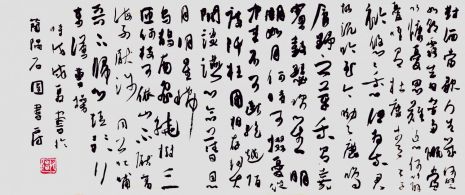 對酒當歌人生幾何譬
如朝露去日苦多慨當
以慷憂思難忘何以解
憂唯有杜康青青子
衿悠悠我心但為君故
沉吟至今呦呦鹿鳴
食野之苹我有嘉
賓鼓瑟吹笙明
明如月何時可掇憂從
中來不可斷絕越陌
度阡枉用相存契
闊談讌心念舊恩
月明星稀
烏鵲南飛繞樹三
匝何枝可依山不厭高
海不厭深周公吐哺
天下歸心短歌行
曹操
書於
石園書齋